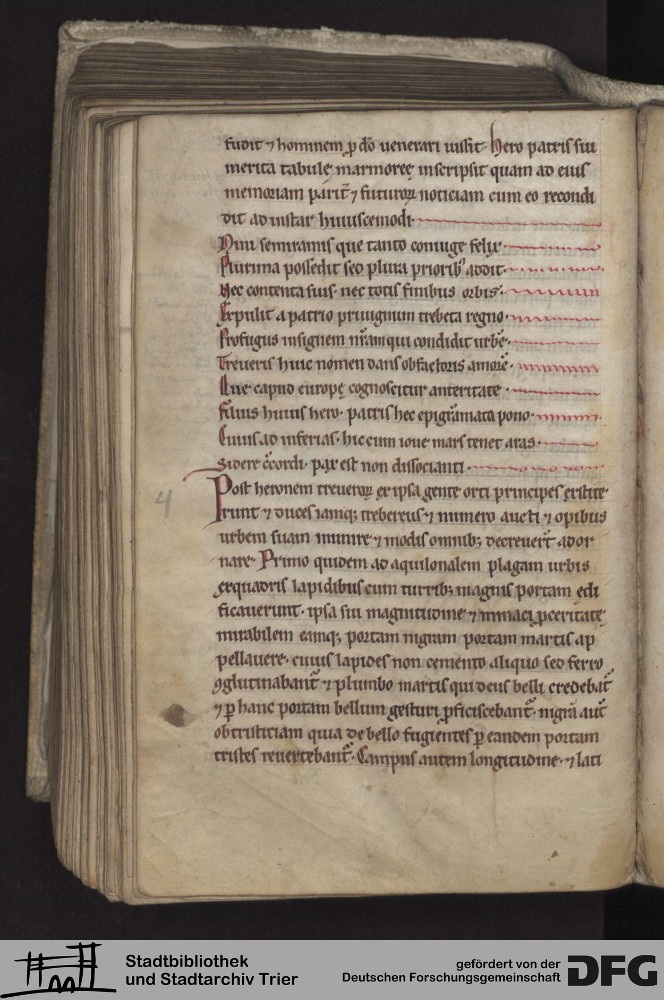 fudit ⁊ hominem ꝓ dō uenerari iussit. Hero patris sui
merita tabulę marmoreę inscripsit quam ad eius
memoriam parit̄ ⁊ futuroꝝ noticiam cum eo recondi
dit ad instar huiuscemodi
Nini semiramis que tanto coniuge felix.
Plurima possedit sed plura priorib; addit.
Nec contenta suis. nec totis finibus orbis.
Expulit a patrio priuignum trebeta regno.
Profugus insignem nr̄am qui condidit urbē.
Treueris huic nomen dans ob factoris amorē.
Que capud europę cognoscitur anteritate.
Filius huius hero. patris hec epigrāmata pono.
Cuius ad inferias. hic cum ioue mars tenet aras.
Sidere cōcordi. pax est non dissocianti.
4
Post heronem treueroꝝ ex ipsa gente orti principes extite
runt ⁊ duces iamq; crebereus ⁊ numero aucti ⁊ opibus
urbem suam munire ⁊ modis omnib; decreuert̄ ador
nare. Primo quidem ad aquilonalem plagam urbis
exquadris lapidibus cum turrib; magnis portam edi
ficauerunt. ipsa sui magnitudine ⁊ minaci ꝓceritate
mirabilem eamq; portam nigram portam martis ap
pellauere. cuius lapides non cemento aliquo sed ferro
ꝯglutinabant̄ ⁊ plumbo martis qui deus belli credebat̄
⁊ ꝑ hanc portam bellum gesturi ꝓficiscebant̄. nigrā aut̄
ob tristiciam quia de bello fugientes ꝑ eandem portam
tristes reuertebant̄. Campus autem longitudine. ⁊ lati
Stadtbibliothek
und Stadtarchiv Trier
gefördert von der
Deutschen Forschungsgemeinschaft
DFG